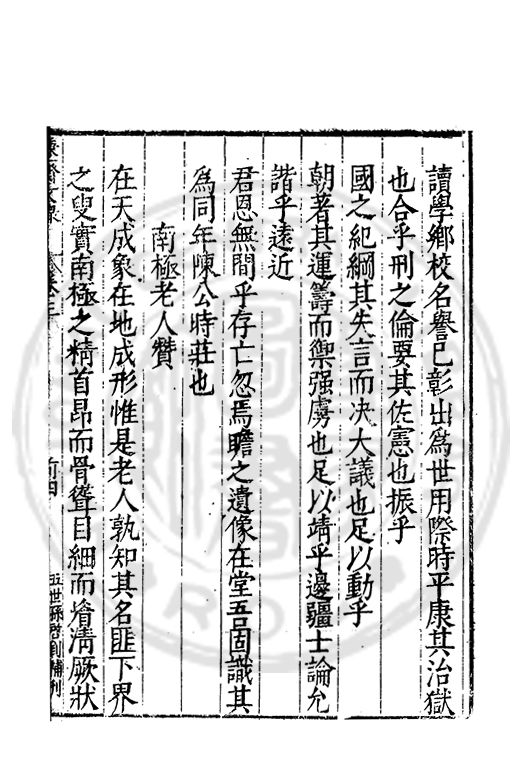 讀學鄉校名譽已彰出為世用際時平康其治獄
也合乎刑之倫要其佐憲也振乎
國之紀綱其失言而决大議也足以動乎
朝著其運籌而禦强虜也足以靖乎邊疆士論允
諧乎遠近
君恩無間乎存亡忽焉瞻之遺像在堂吾固識其
為同年陳公時莊也
南極老人贊
在天成象在地成形惟是老人孰知其名匪下界
之叟實南極之精首昂而骨聳目細而脩淸厥狀
五世孫啓